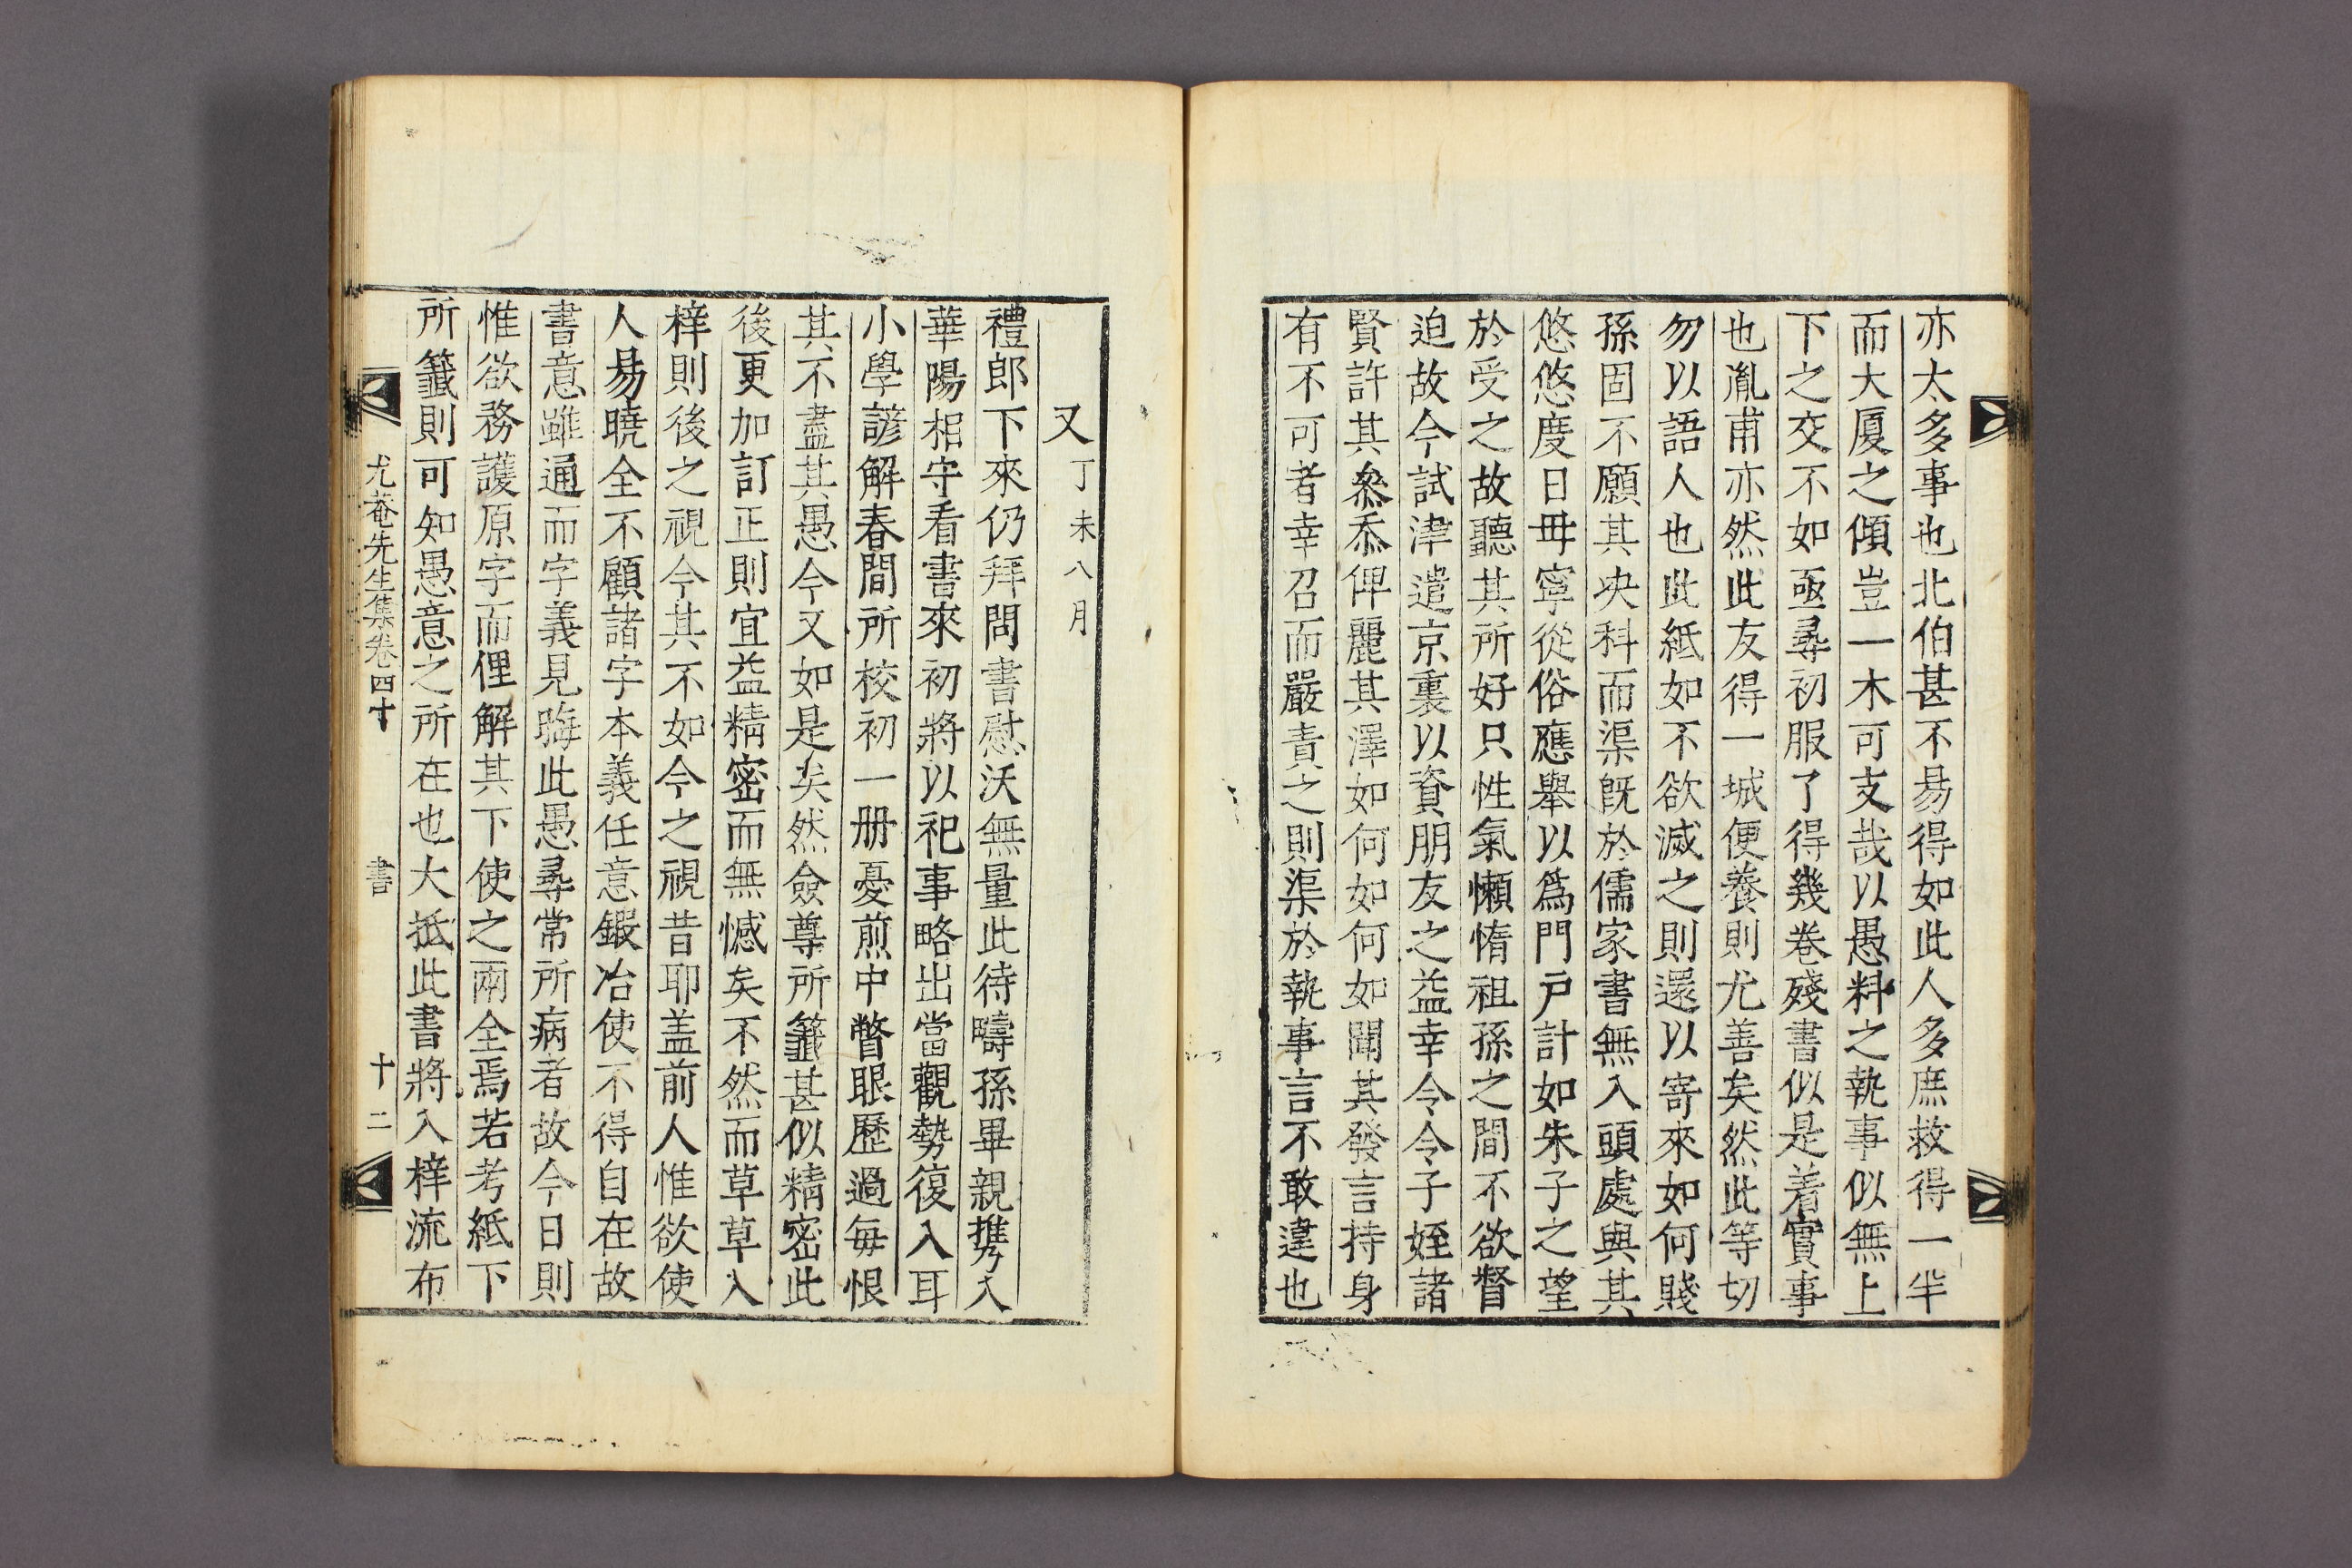 亦太多事也北伯甚不易得如此人多庶救得一半
而大厦之傾豈一木可支哉以愚料之執事似無上
下之交不如亟尋初服了得幾巻殘書似是着實事
也胤甫亦然此友得一城便養則尤善矣然此等切
勿以語人也此紙如不欲滅之則還以寄來如何賤
孫固不願其决科而渠旣於儒家書無入頭處與其
悠悠度日毋寧從俗應舉以爲門戶計如朱子之望
於受之故聽其所好只性氣懶惰祖孫之間不欲督
迫故今試津遣京裏以資朋友之益幸令令子姪諸
賢許其叅忝俾麗其澤如何如何如聞其發言持身
有不可者幸召而嚴責之則渠於執事言不敢違也
又 丁未八月
禮郎下來仍拜問書慰沃無量此待疇孫畢親携入
華陽相守看書來初將以祀事略出當觀勢復入耳
小學諺解春間所校初一册憂煎中瞥眼歷過每恨
其不盡其愚今又如是矣然僉尊所籤甚似精密此
後更加訂正則宜益精密而無憾矣不然而草草入
梓則後之視今其不如今之視昔耶盖前人惟欲使
人易曉全不顧諸字本義任意鍜冶使不得自在故
書意雖通而字義見晦此愚尋常所病者故今日則
惟欲務護原字而俚解其下使之兩全焉若考紙下
所籤則可知愚意之所在也大抵此書將入梓流布
尤菴先生集卷四十 書 十二